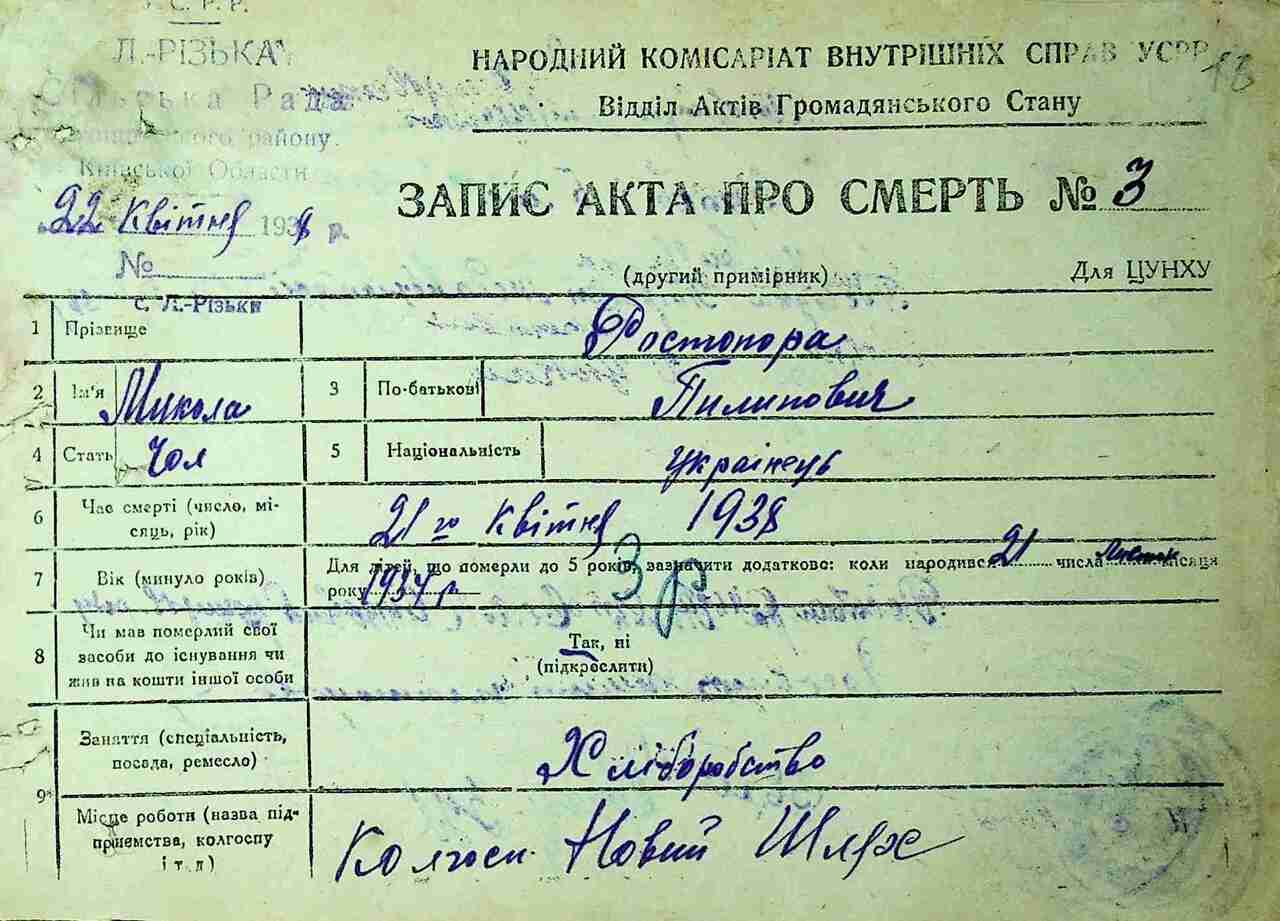 У.С.Р.Р.
Л.-РІЗЬКА
Сільська Рада
району
Київської Області
22 Квітня 1938 р.
№
с. Л.-Різьки
НАРОДНИЙ КОМІСАРІАТ ВНУТРІШНІХ СПРАВ УСРР
18
Відділ Актів Громадянського Стану
ЗАПИС АКТА ПРО СМЕРТЬ № 3
(другий примірник)
Для ЦУНХУ
1 Прізвище Ростопора
2 Ім'я Микола 3 По-батькові Пилипович
4 Стать Чол 5 Національність українець
6 Час смерті (число, мі-
сяць, рік) 21го Квітня 1938
7 Вік (минуло років) Для дітей, що померли до 5 років, зазначити додатково: коли народився 21 числа Листоп місяця
року 1934 р
3 р
8 Чи мав померлий свої
засоби до існування чи
жив на кошти іншої особи
Так, ні
(підкреслити)
9 Заняття (спеціальність,
посада, ремесло) Хліборобство
Місце роботи (назва під-
приємства, колгоспу
і т. п) Колгосп Новий Шлях